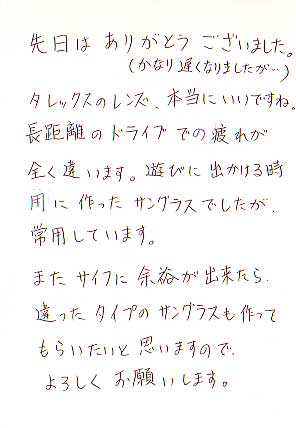 先日は ありがとう ございました。
(かなり 遅くなりましたが…)
タレックスのレンズ、本当にいいですね。
長距離の ドライブ での 疲れが
全く違います。遊びに 出かける時
用に 作った サングラスでしたが、
常用しています。
また サイフに 余裕が出来たら、
違った タイプの サングラスも 作って
もらいたいと 思いますので、
よろしく お願いします。